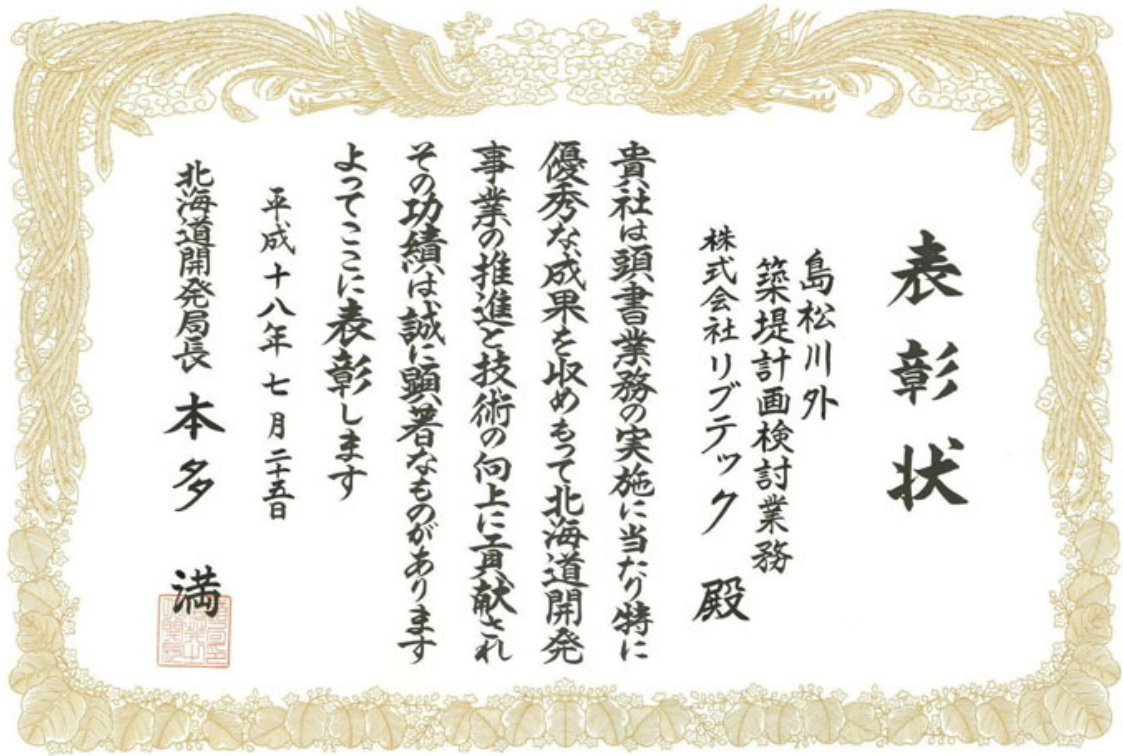 表彰状
島松川外
築堤計画検討業務
株式会社リブテック 殿
貴社は頭書業務の実施に当たり特に
優秀な成果を収めもって北海道開発
事業の推進と技術の向上に貢献され
その功績は誠に顕著なものがあります
よってここに表彰します
平成十八年七月二十五日
北海道開発局長 本多 満